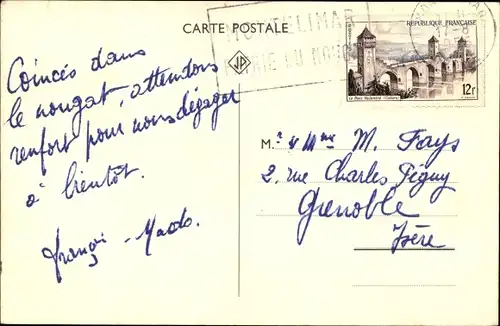 CARTE POSTALE
MONTELIMAR
DU NOUGAT
RÉPUBLIQUE FRANÇAISE
Le Pont Valentré - Cahors
12f
JP
Coincés dans
le nougat, attendons
renfort pour nous dégager
à bientôt.
M.r & Mme M. Fays
2, rue Charles Péguy
Grenoble
Isère